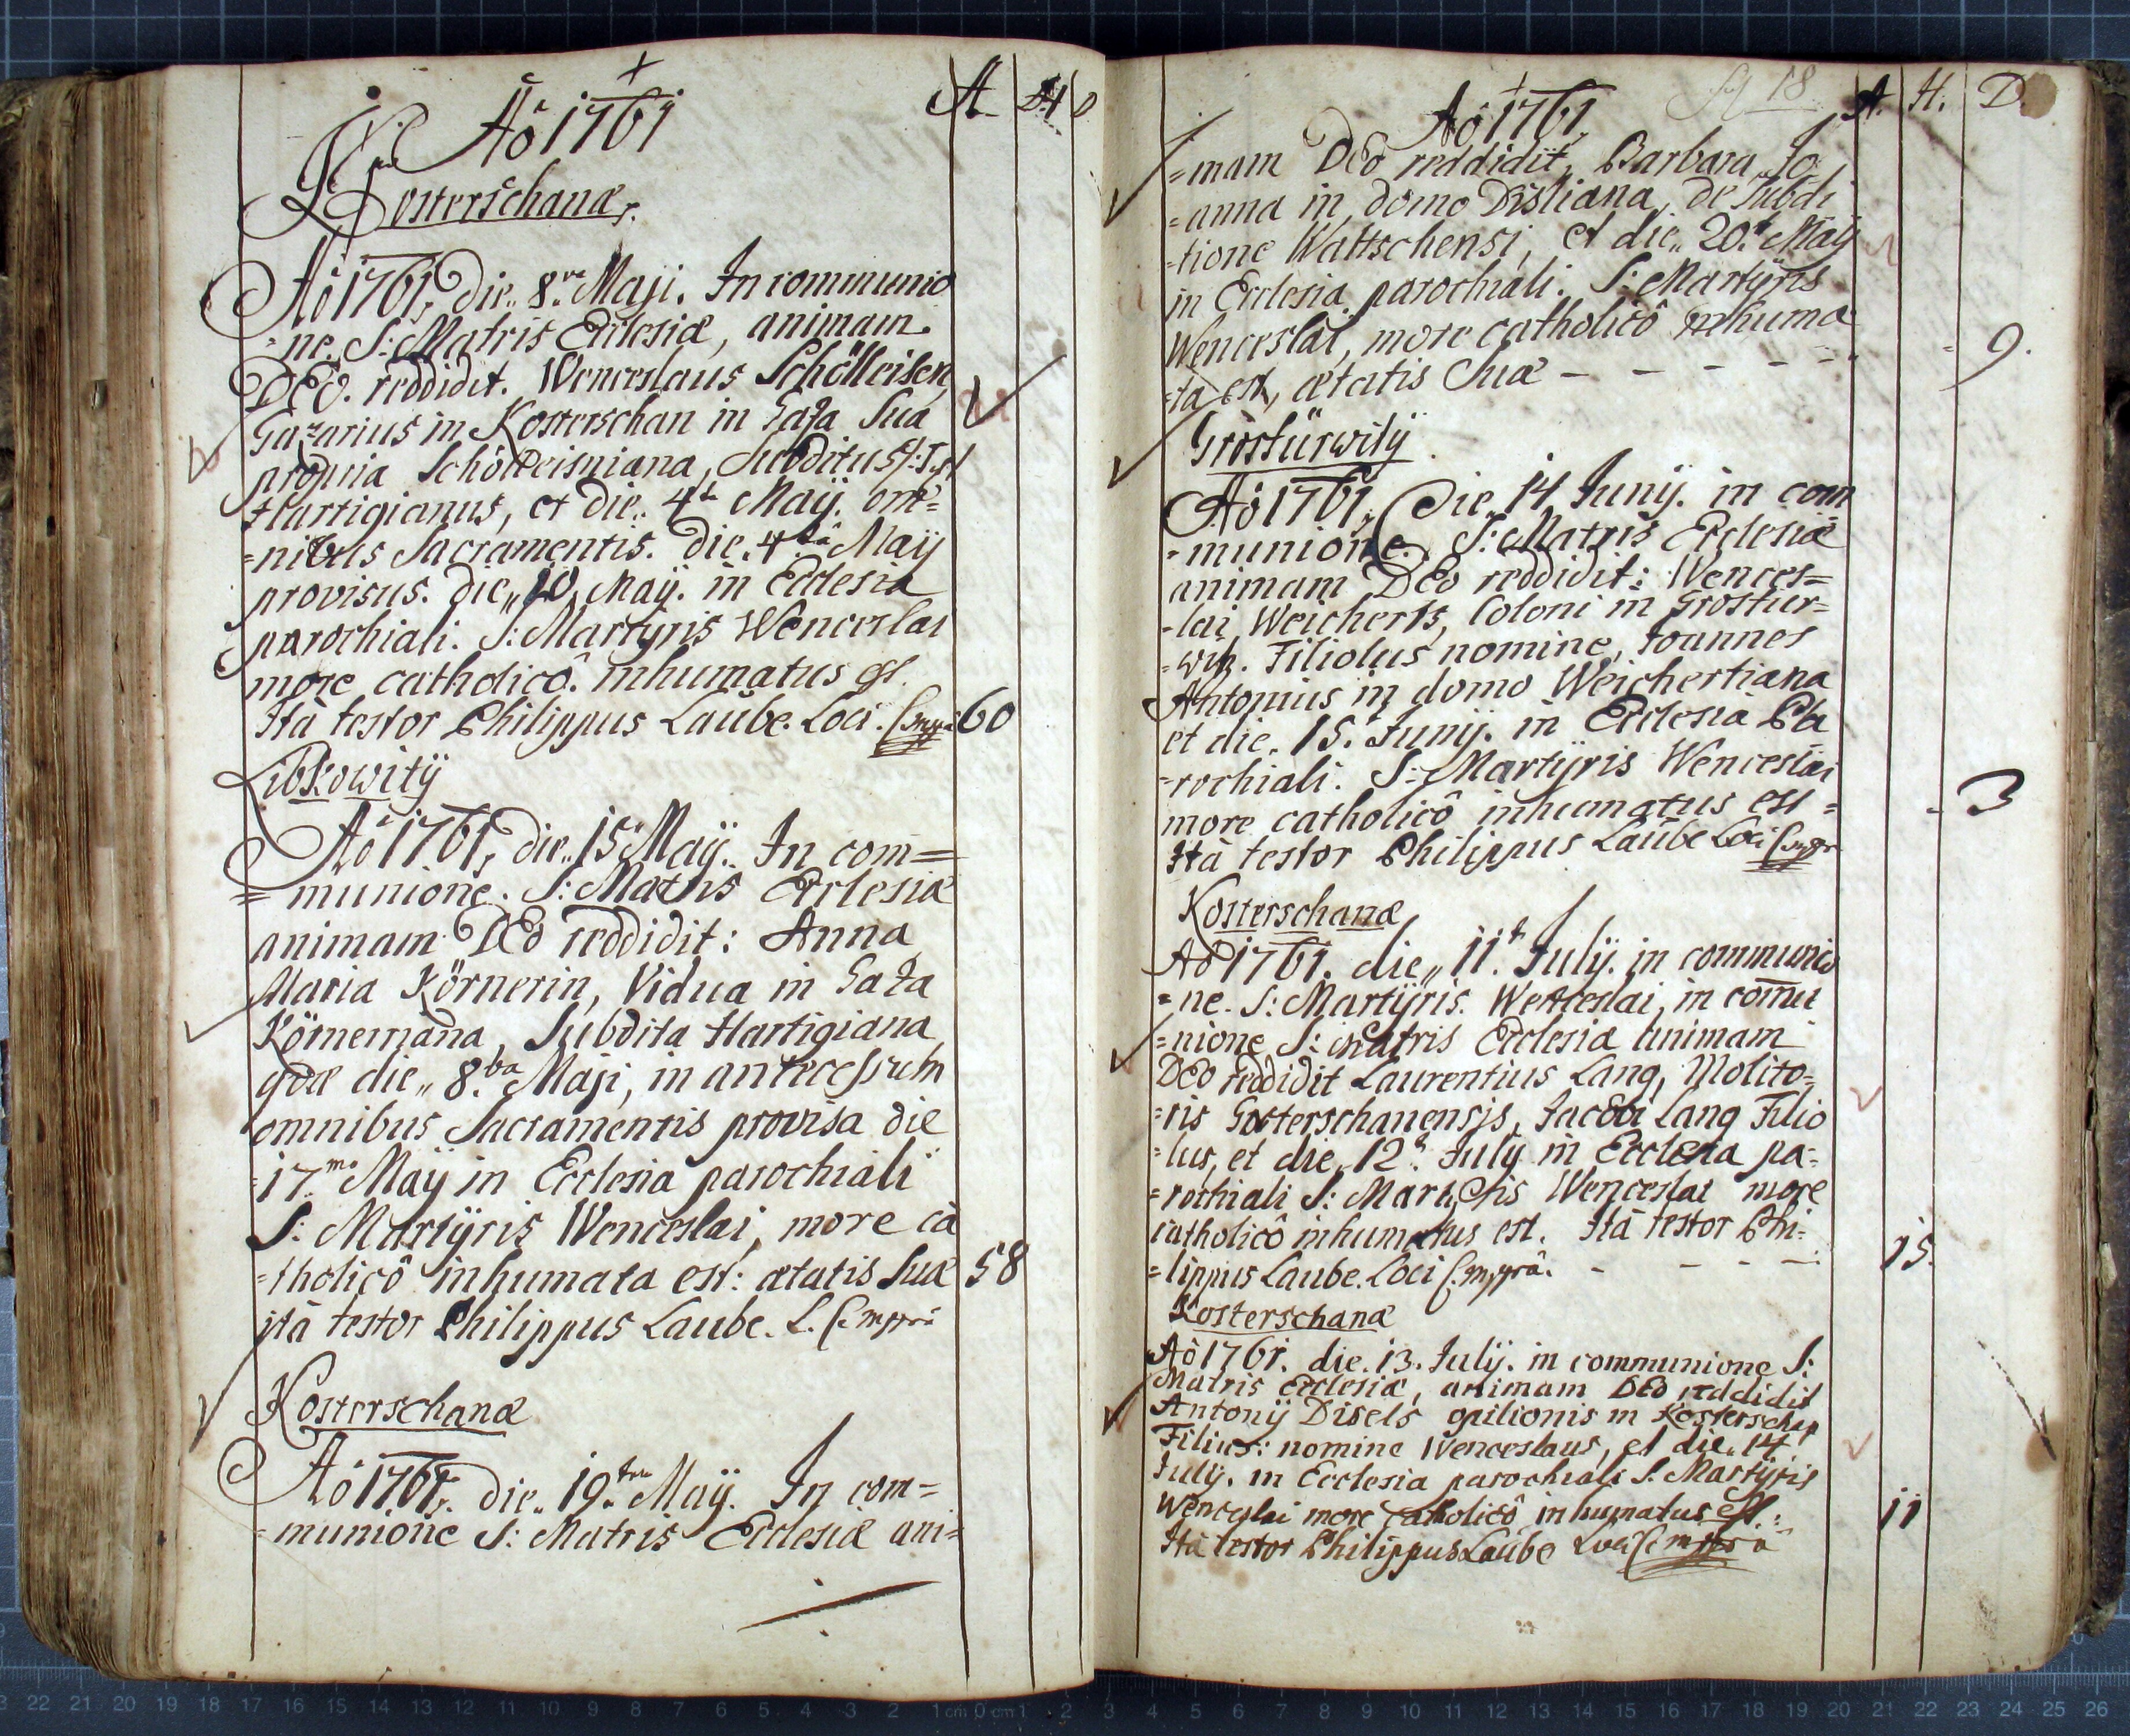 Aô 1761
A H D
Kosterschanæ.
Aô 1761, die 8va Maji. In communio
=ne. S: Matris Ecclesiæ, animam
DEO. reddidit. Wenceslaus Schölleisen,
Gazarius in Kosterschan in Gaza Sua
propria Schölleisniana, Subditus
Hartigianus, et die 4ta Maij. om=
=nibus Sacramentis. die 4ta Maij
provisus. die 10 Maij. in Ecclesia
parochiali. S: Martyris Wenceslai
more catholicô. inhumatus est.
Ità testor Philippus Laube. Loci. C. mppriâ 60
Libkowitÿ
Aô 1761, die 15 Maij. In com=
=munione. S: Matris Ecclesiæ
animam DEO reddidit: Anna
Maria Körnerin, Vidua in Gaza
Körneriana, Subdita Hartigiana
qdæ die 8va Maji, in antecessum
omnibus Sacramentis provisa die
17ma Maij in Ecclesia parochiali
S: Martÿris Wenceslai, more ca
=tholicô inhumata est: ætatis Suæ 58
ità testor Philippus Laube. L. C. mppriâ
Kosterschanæ
Aô 1761. die 19na Maij. In com=
=munione S: Matris Ecclesiæ ani=
Aô 1761 18 A. H. D.
=mam DEO reddidit, Barbara Jo
=anna in domo Disliana, de Subdi
=tione Wattschensi, et die 20. Maij
in Ecclesia parochiali. S: Martÿris
Wenceslai, more catholicô inhuma
=ta est, ætatis Suæ - - - - - 9.
Grostürwitÿ.
Aô 1761, Die 14 Junij. in com
=munione. S: Matris Ecclesiæ
animam DEO reddidit: Wences=
=lai Weicherts, Coloni in Grostür=
=witz. Filiolus nomine, Joannes
Antonius in domo Weichertiana
et die 15. Junij. in Ecclesia Pa
=rochiali. S: Martÿris Wenceslai
more catholicô inhumatus est = - 3
Ità testor Philippus Laube Loci C. mppr
Kosterschanæ
Aô 1761. die 11t July. in communio
=ne. S: Martÿris. Wenceslai, in com̄u
=nione S: Matris Ecclesiæ animam
DEO reddidit Laurentius Lang, Molito=
=ris Gosterschanensis, Jacobi Lang Filio
=lus, et die 12t July in Ecclesia pa=
=rochiali S: Martyris Wenceslai more
catholicô inhumatus est. Ità testor Phi=
=lippus Laube. Loci C. mppriâ. - - - - 15.
Kosterschanæ
Aô 1761. die. 13. Julij. in communione S:
Matris Ecclesiæ, animam DEO reddidit
Antonij Disels opilionis in Kosterschan
Filius: nomine Wenceslaus, et die. 14
Julij. in Ecclesia parochiali S. Martÿris
Wenceslai more catholicô inhumatus est: 11
Ità testor Philippus Laube Loci C. mppriâ